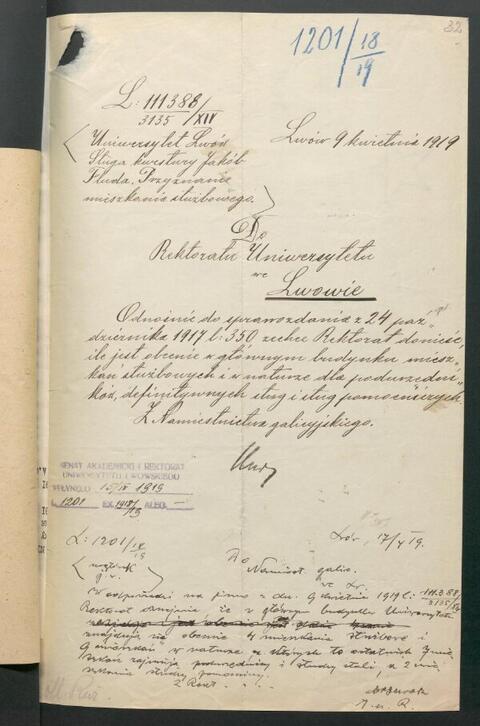 32
1201/18/19
L: 111388/XIV
3135
Uniwersytet Lwów
Sługa kwestury Jakób
Fluda. Przyznanie
mieszkania służbowego.
Lwów 9 kwietnia 1919
Do
Rektoratu Uniwersytetu
we
Lwowie
Odnośnie do sprawozdania z 24 paź-
dziernika 1917 l: 350 zechce Rektorat donieść,
ile jest obecnie w głównym budynku miesz-
kań służbowych i w naturze dla podurzędni-
ków, definitywnych sług i sług pomocniczych.
Z Namiestnictwa galicyjskiego.
SENAT AKADEMICKI I REKTORAT
UNIWERSYTETU LWOWSKIEGO
WPŁYNĘŁO 15/IV 1919
L. 1201 EX 1918/19 ALEG. —
L: 1201/18/19
Lwów, 17/ 19.
Do
Namiest. galic.
we Lw.
W odpowiedzi na pismo z dn. 9 kwietnia 1919 l: 111388/XIV
3135
Rektorat oznajmia, że w głównym budynku Uniwersytetu
znajdują się obecnie 4 mieszkania służbowe i
9 mieszkań w naturze z których to ostatnich 7 mie-
szkań zajmują podurzędnicy i słudzy stali, a 2 mie-
szkania słudzy pomocniczy.
Z Rekt